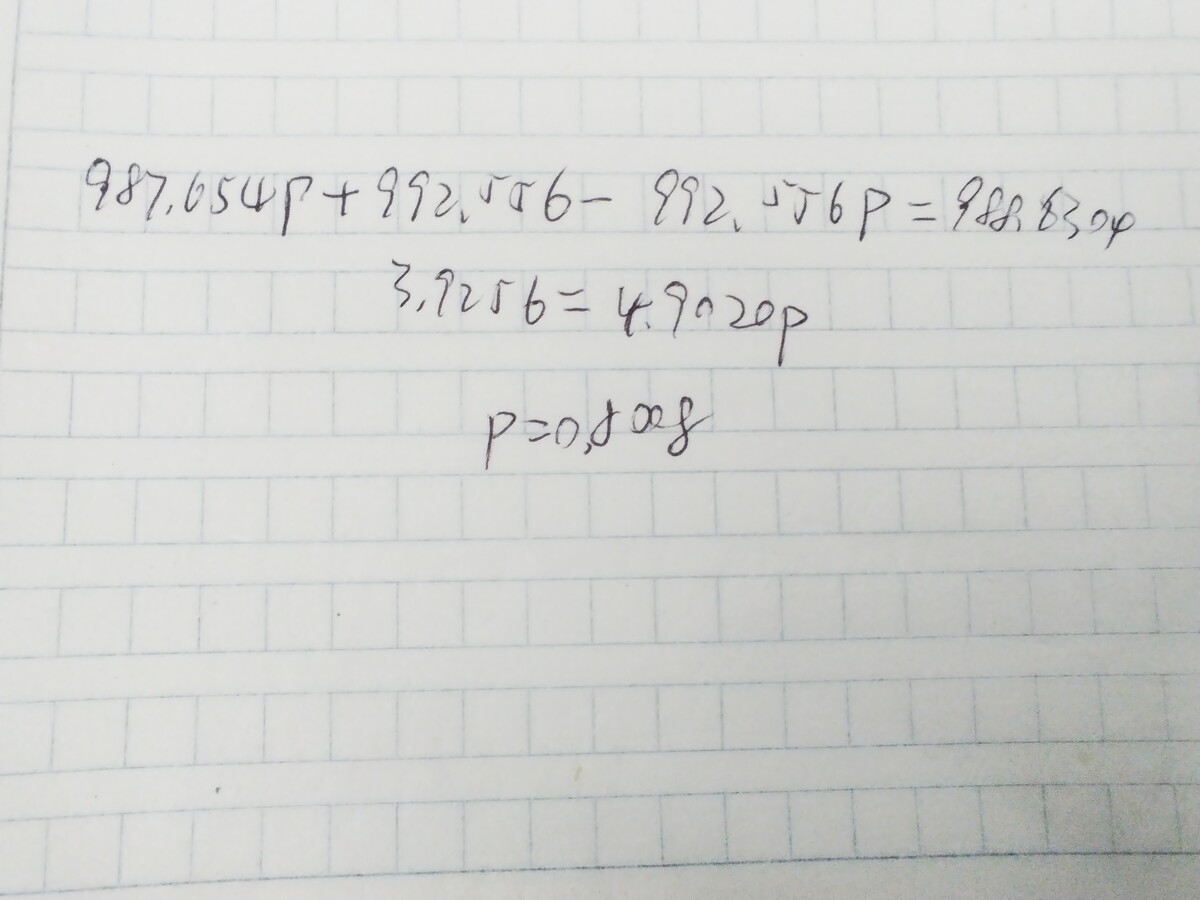 987.654p+992.556-992.556p=988.6304
3.9256=4.9020p
p=0.8008